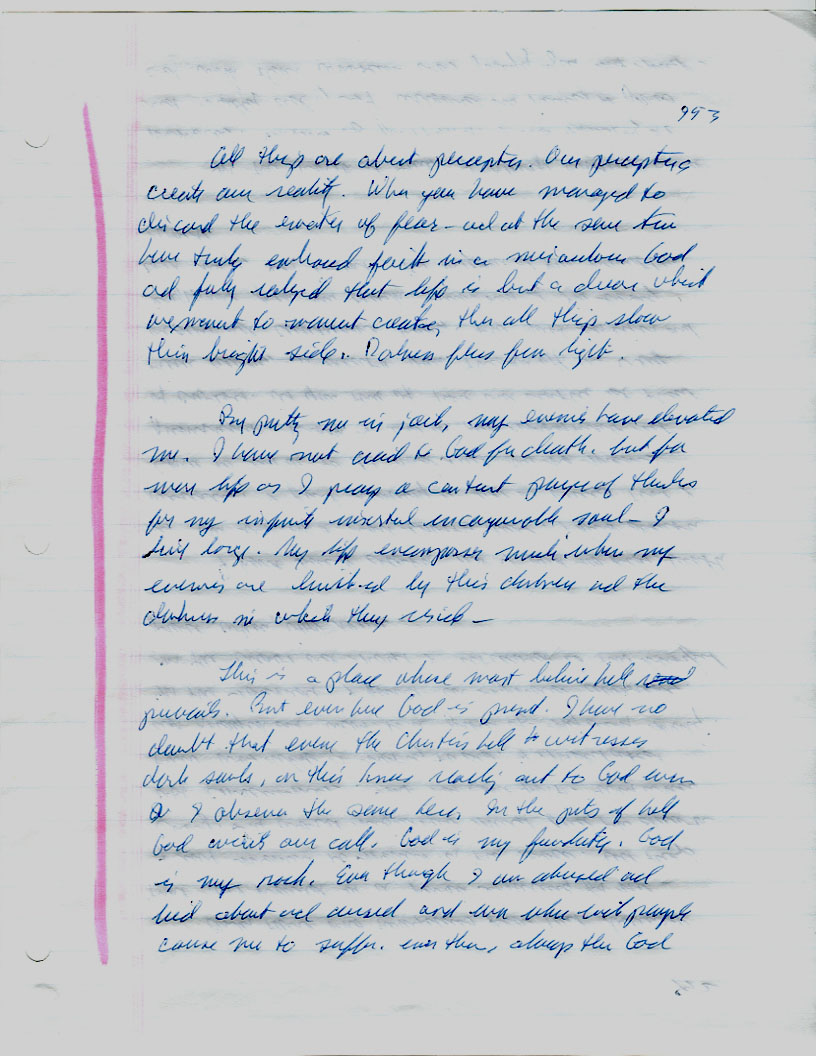 953
All things are about perception. Our perceptions
create our reality. When you have managed to
discard the of fear - and at the same time
have truly embraced faith in a miraculous God
and fully realized that life is but a dream which
we to create, then all things show
their bright side. Darkness flees from light.
By putting me in jail, my enemies have elevated
me. I have not cried to God for death. but for
more life as I pray a constant prayer of thanks
for my infinite immortal soul - I
live large. My life encompasses much where my
enemies are by this darkness and the
darkness in which they reside -
This is a place where most believe hell
prevails. But even here God is present. I have no
doubt that even the Christian's hell witnesses
dark souls, on their knees reaching out to God even
as I observe the same here. In the pits of hell
God awaits our call. God is my foundation. God
is my rock. Even though I am abused and
lied about and accused and even when evil people
cause me to suffer. even then, always the God